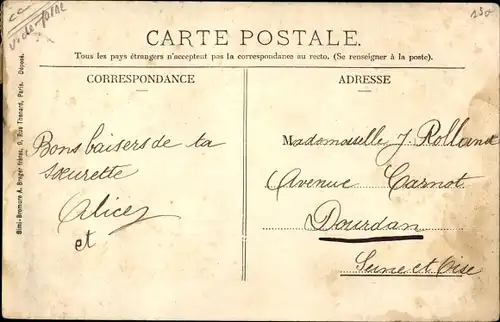 CARTE POSTALE.
Tous les pays étrangers n'acceptent pas la correspondance au recto. (Se renseigner à la poste).
CORRESPONDANCE
ADRESSE
Bons baisers de ta
sœurette
Alice
et
Mademoiselle J. Rolland
Avenue Carnot
Dourdan
Seine et Oise
Simi-Bromure A. Breger frères, 9, Rue Thénard, Paris. Déposé.
cc
150